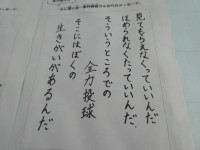 見てもらえなくっていいんだ
ほめられなくたっていいんだ、
そういうところでの
全力投球
そこにはぼくの
生きがいがあるんだ